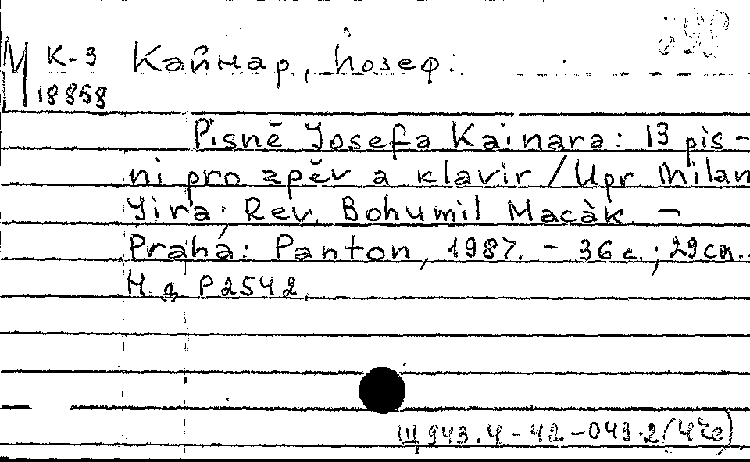 М К-3 Кайнар, Йозеф.
18858
Pisně Josefa Kainara: 13 pis-
ni pro zpěv a klavir / Upr Milan
Jira; Rev. Bohumil Macàk. –
Praha: Panton, 1987. – 36 с.; 29 см.
Н. д. Р 2542.
Щ 943.4-42-049.2(4Че)